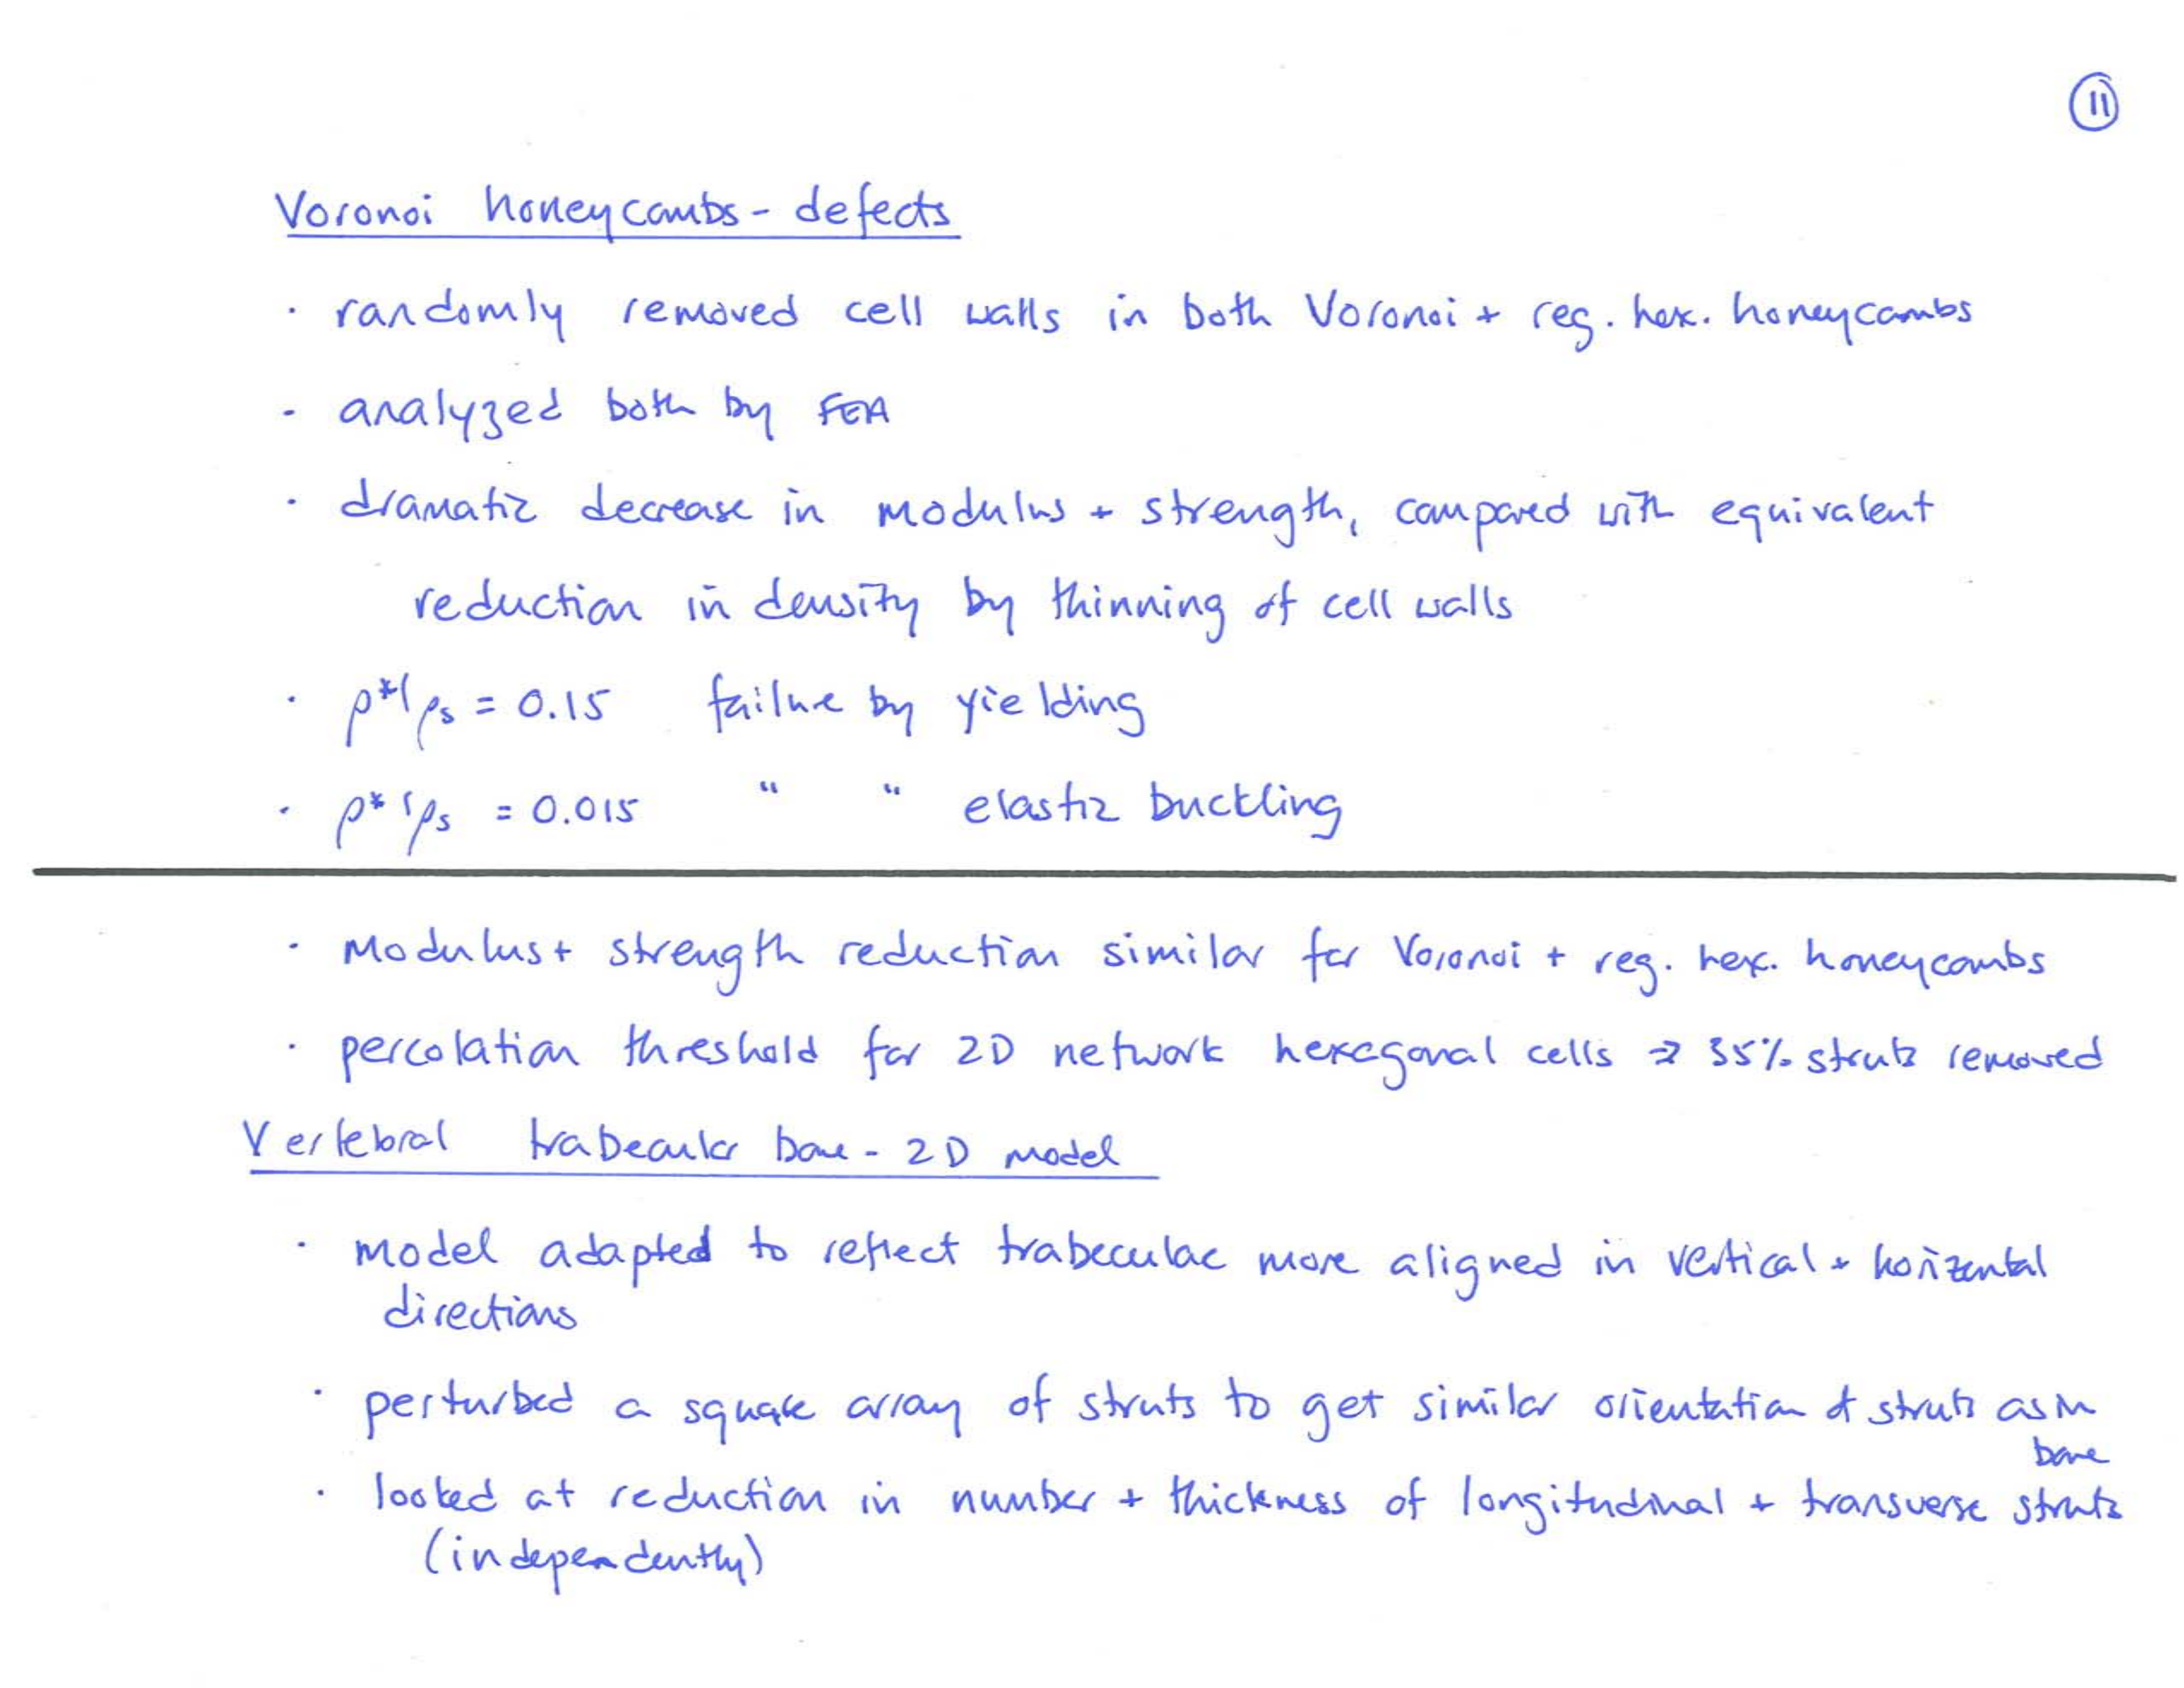 11
Voronoi honeycombs - defects
· randomly removed cell walls in both Voronoi + reg. hex. honeycombs
· analyzed both by FEA
· dramatic decrease in modulus + strength, compared with equivalent
reduction in density by thinning of cell walls
· ρ*/ρs = 0.15 failure by yielding
· ρ*/ρs = 0.015 " " elastic buckling
· Modulus + strength reduction similar for Voronoi + reg. hex. honeycombs
· percolation threshold for 2D network hexagonal cells ⇒ 35% struts removed
Vertebral trabecular bone - 2D model
· model adapted to reflect trabeculae more aligned in vertical + horizontal
directions
· perturbed a square array of struts to get similar orientation of struts as in
bone
· looked at reduction in number + thickness of longitudinal + transverse struts
(independently)